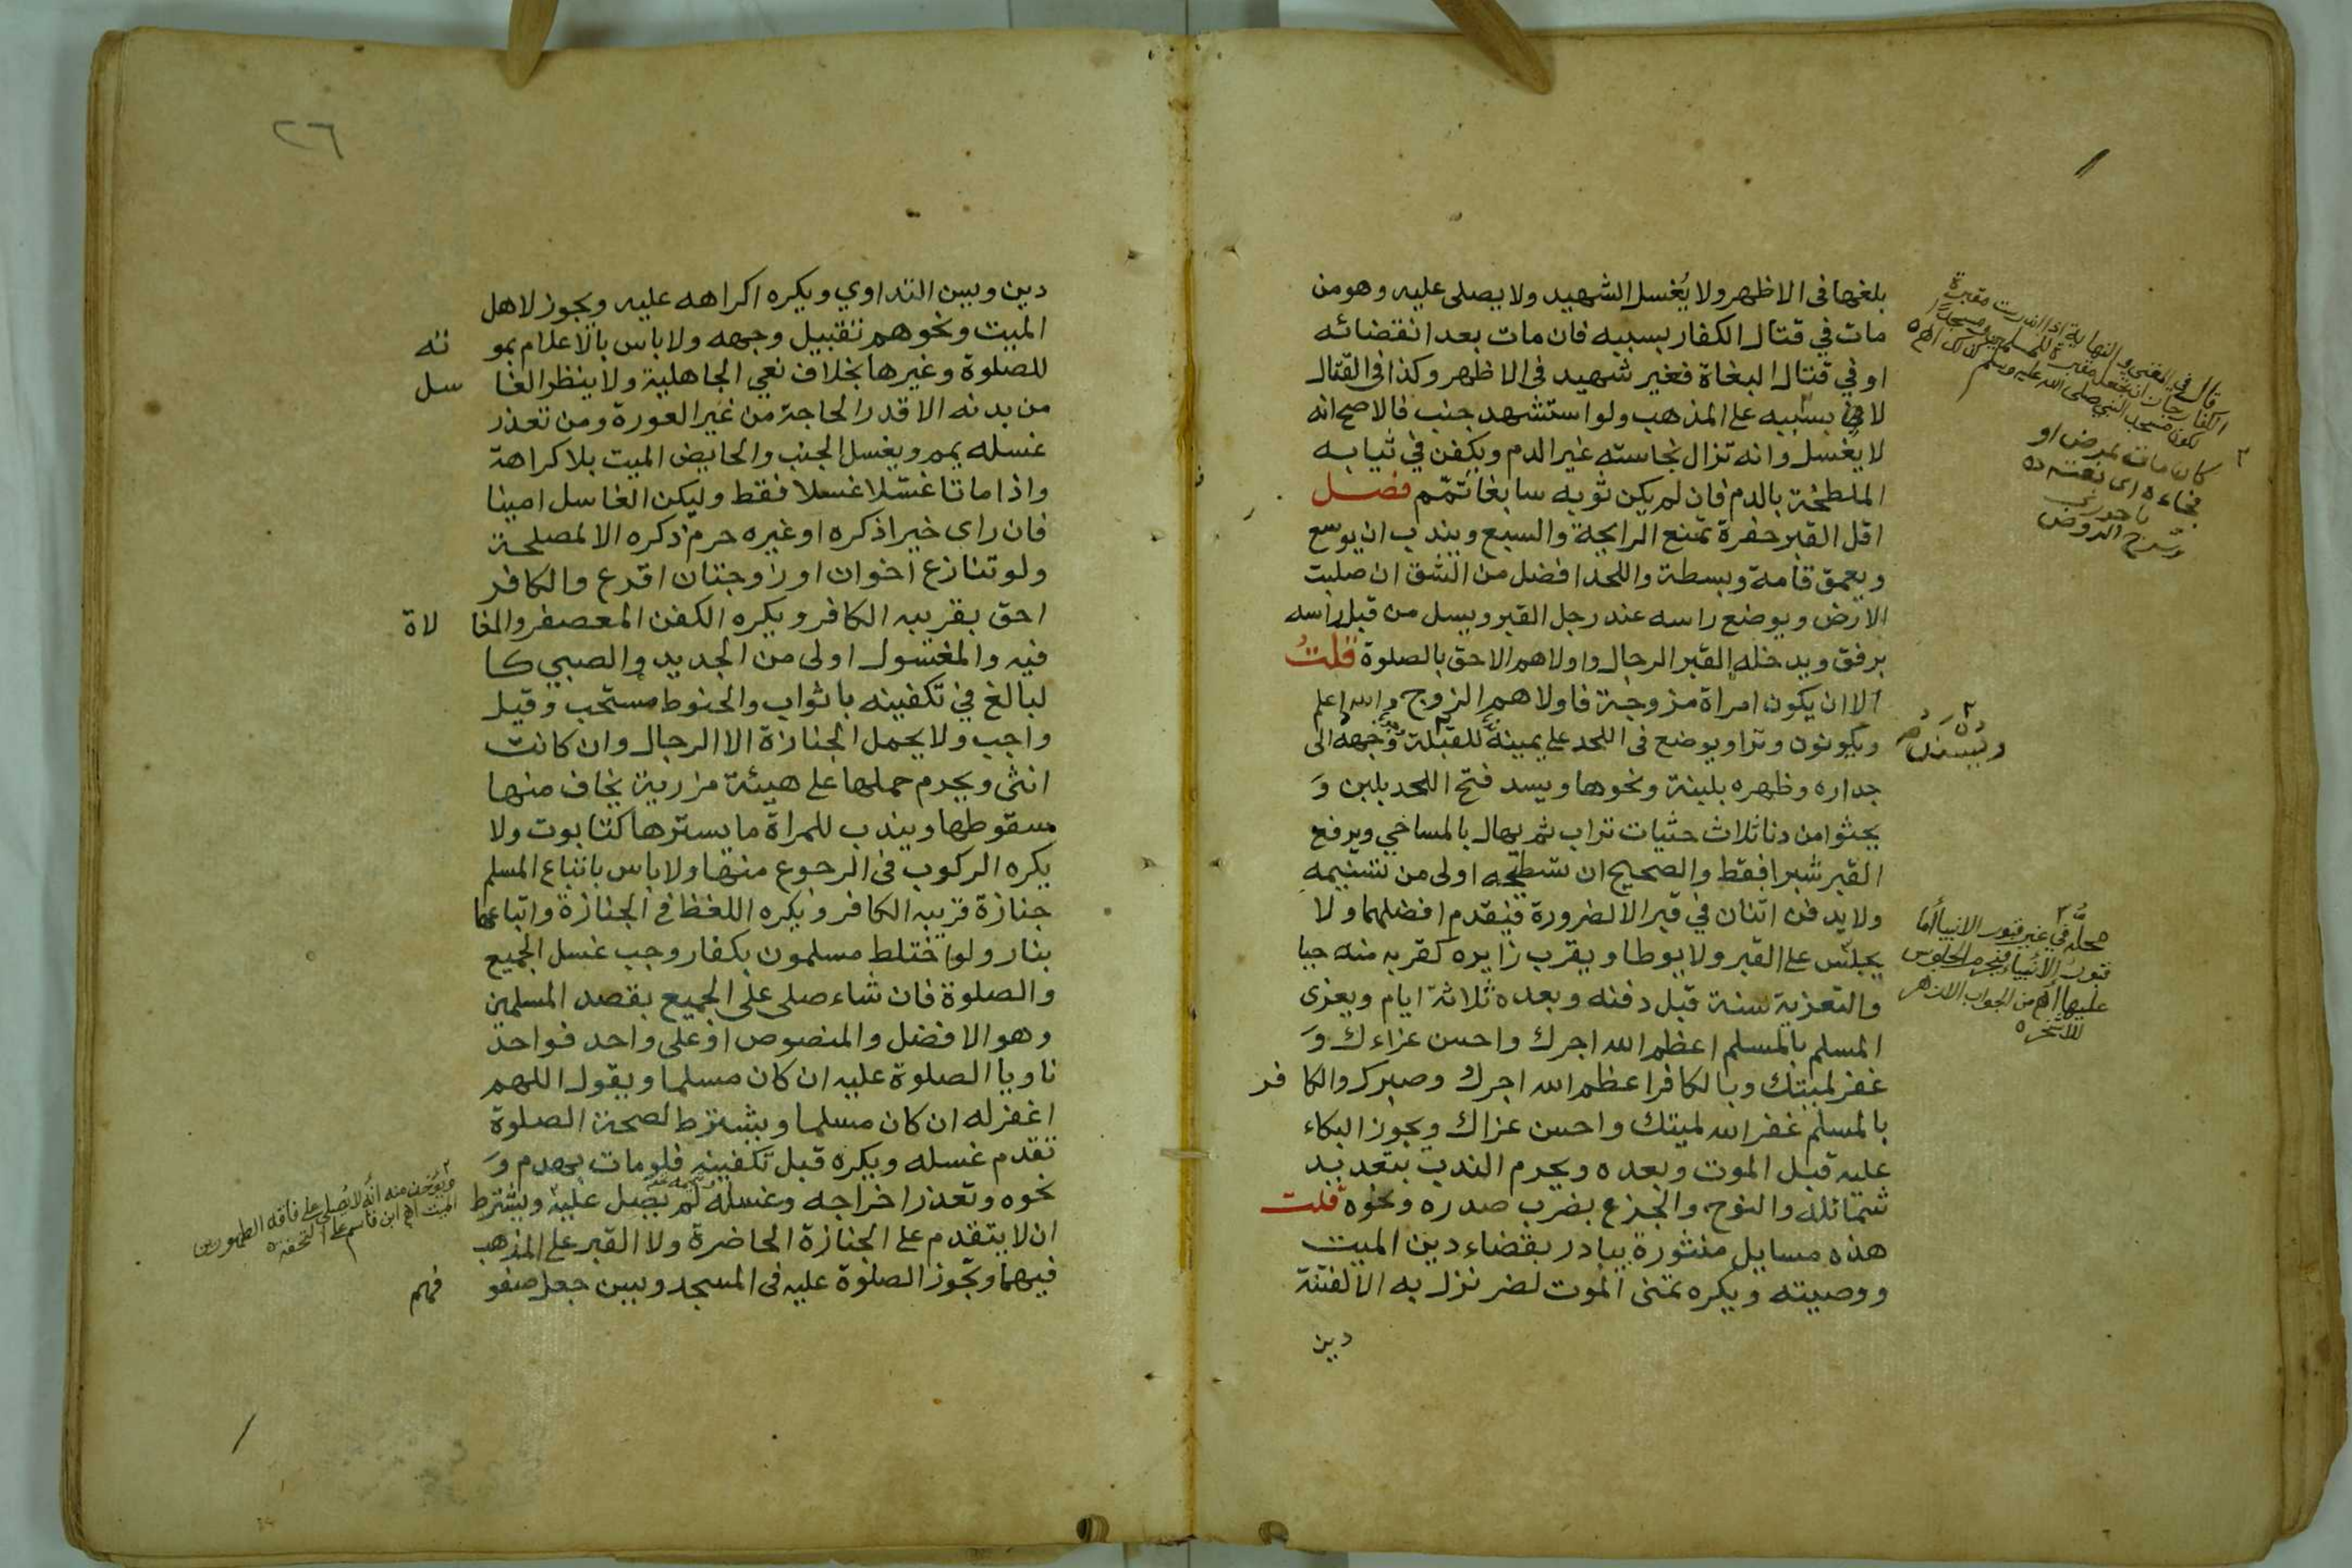 بلغها في الاظهر ولا يُغسل الشهيد ولا يصلى عليه وهو من
مات في قتال الكفار بسببه فان مات بعد انقضائه
او في قتال البغاة فغير شهيد في الاظهر وكذا في القتال
لا بسببه على المذهب ولو استشهد جنب فالاصح انه
لا يغسل وانه تزال نجاسته غير الدم ويكفن في ثيابه
الملطخة بالدم فان لم يكن ثوبه سابغا تمّم فصل
اقل القبر حفرة تمنع الرايحة والسبع ويندب ان يوسع
ويعمق قامة وبسطة واللحد افضل من الشق ان صلبت
الارض ويوضع راسه عند رجل القبر ويسل من قبل راسه
برفق ويدخله القبر الرجال واولاهم الاحق بالصلوة قلتُ
الا ان يكون امراة مزوجة فاولاهم الزوج والله اعلم
ويكونون وترا ويوضع في اللحد على يمينه للقبلة وجهه الى
جداره وظهره بلبنة ونحوها ويسد فتح اللحد بلبن وَ
يحثوا من دنا ثلاث حثيات تراب ثم يهال بالمساحي ويرفع
القبر شبرا فقط والصحيح ان تسطيحه اولى من تسنيمه
ولا يدفن اثنان في قبر الا لضرورة فيقدم افضلهما ولا
يجلس على القبر ولا يوطا ويقرب زايره كقربه منه حيا
والتعزية سنة قبل دفنه وبعده ثلاثة ايام ويعزى
المسلم بالمسلم اعظم الله اجرك واحسن عزاءك وَ
غفر لميتك وبالكافر اعظم الله اجرك وصبرك والكافر
بالمسلم غفر الله لميتك واحسن عزاك ويجوز البكاء
عليه قبل الموت وبعده ويحرم الندب بتعديد
شمائله والنوح والجزع بضرب صدره ونحوه قلت
هذه مسايل منثورة يبادر بقضاء دين الميت
ووصيته ويكره تمنى الموت لضر نزل به الا لفتنة
دين
قال في المغني والنهاية اذا اندرست مقبرة
الكفار جاز ان تجعل مقبرة للمسلمين ومسجدا
لكون مسجد النبي صلى الله عليه وسلم كذلك اهـ
كان مات لمرض او
فجاءة اى بغتة
باجوري
وشرح الروض
محله في غير قبور الانبيا أما
قبور الأنبياء فيحرم الجلوس
عليها اهـ من الجواب الازهر
٢٦
دين ويسن التداوي ويكره اكراهه عليه ويجوز لاهل
الميت ونحوهم تقبيل وجهه ولا باس بالاعلام بموته
للصلوة وغيرها بخلاف نعي الجاهلية ولا ينظر الغاسل
من بدنه الا قدر الحاجة من غير العورة ومن تعذر
غسله يمم ويغسل الجنب والحايض الميت بلا كراهة
واذا ماتا غسّلا غسلا فقط وليكن الغاسل امينا
فان راى خيرا ذكره او غيره حرم ذكره الا لمصلحة
ولو تنازع اخوان او زوجتان اقرع والكافر
احق بقريبه الكافر ويكره الكفن المعصفر والمغالاة
فيه والمغسول اولى من الجديد والصبي كا
لبالغ في تكفينه باثواب والحنوط مستحب وقيل
واجب ولا يحمل الجنازة الا الرجال وان كانت
انثى ويحرم حملها على هيئة مزرية يخاف منها
سقوطها ويندب للمراة ما يسترها كتابوت ولا
يكره الركوب في الرجوع منها ولا باس باتباع المسلم
جنازة قريبه الكافر ويكره اللغظ في الجنازة واتباعها
بنار ولو اختلط مسلمون بكفار وجب غسل الجميع
والصلوة فان شاء صلى على الجميع بقصد المسلمين
وهو الافضل والمنصوص او على واحد فواحد
ناويا الصلوة عليه ان كان مسلما ويقول اللهم
اغفر له ان كان مسلما ويشترط لصحة الصلوة
تقدم غسله ويكره قبل تكفينه فلو مات بهدم وَ
نحوه وتعذر اخراجه وغسله لم يصل عليه ويشترط
ان لا يتقدم على الجنازة الحاضرة ولا القبر على المذهب
فيهما وتجوز الصلوة عليه في المسجد ويسن جعل صفوفهم
ويؤخذ منه أنه لا يُصلى على فاقد الطهورين
الميت اهـ ابن قاسم على التحفة